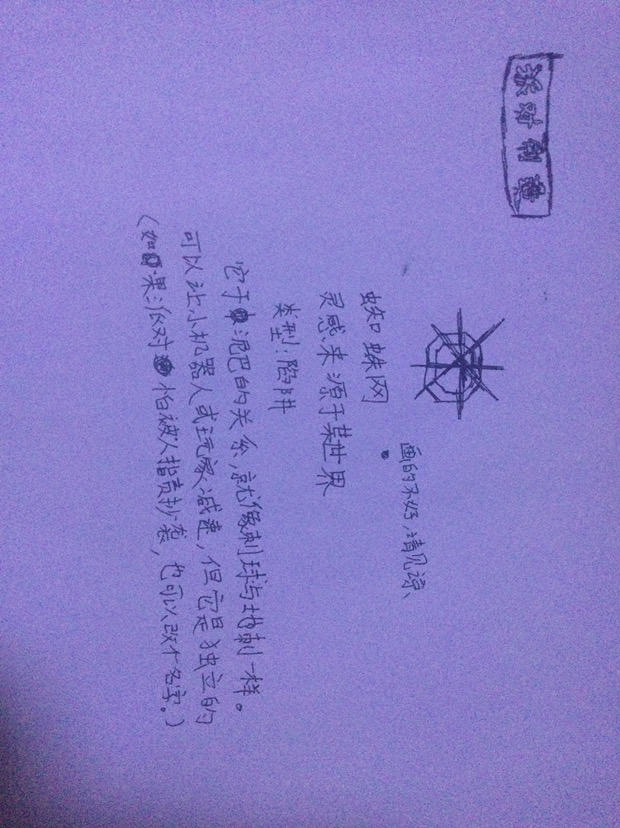 派对创造
画的不好，请见谅、
蜘蛛网
灵感来源于某世界
类型：陷阱
它于泥巴的关系，就像刺球与地刺一样。
可以让小机器人或玩家减速，但它是独立的
（如果派对怕被人指责抄袭，也可以改个名字。）